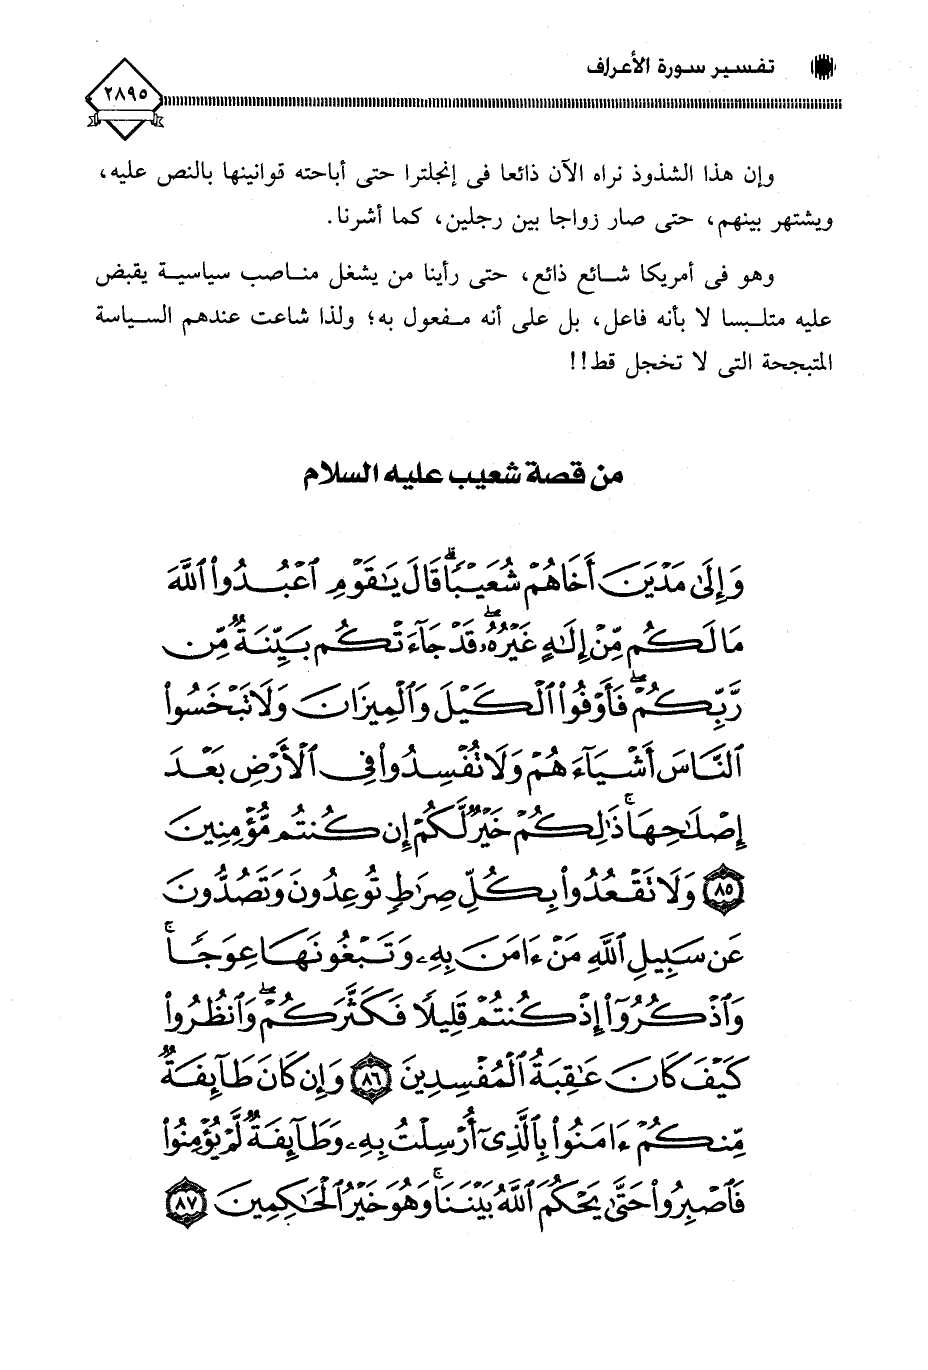 تفسير سورة الأعراف
٢٨٩٥
وإن هذا الشذوذ نراه الآن ذائعا فى إنجلترا حتى أباحته قوانينها بالنص عليه،
ويشتهر بينهم، حتى صار زواجا بين رجلين، كما أشرنا.
وهو فى أمريكا شائع ذائع، حتى رأينا من يشغل مناصب سياسية يقبض
عليه متلبسا لا بأنه فاعل، بل على أنه مفعول به؛ ولذا شاعت عندهم السياسة
المتبجحة التى لا تخجل قط!!
من قصة شعيب عليه السلام
وَإِلَىٰ مَدْيَنَ أَخَاهُمْ شُعَيْبًا ۗ قَالَ يَـٰقَوْمِ ٱعْبُدُوا۟ ٱللَّهَ
مَا لَكُم مِّنْ إِلَـٰهٍ غَيْرُهُۥ ۖ قَدْ جَآءَتْكُم بَيِّنَةٌ مِّن
رَّبِّكُمْ ۖ فَأَوْفُوا۟ ٱلْكَيْلَ وَٱلْمِيزَانَ وَلَا تَبْخَسُوا۟
ٱلنَّاسَ أَشْيَآءَهُمْ وَلَا تُفْسِدُوا۟ فِى ٱلْأَرْضِ بَعْدَ
إِصْلَـٰحِهَا ۚ ذَٰلِكُمْ خَيْرٌ لَّكُمْ إِن كُنتُم مُّؤْمِنِينَ
٨٥ وَلَا تَقْعُدُوا۟ بِكُلِّ صِرَٰطٍ تُوعِدُونَ وَتَصُدُّونَ
عَن سَبِيلِ ٱللَّهِ مَنْ ءَامَنَ بِهِۦ وَتَبْغُونَهَا عِوَجًا ۚ
وَٱذْكُرُوٓا۟ إِذْ كُنتُمْ قَلِيلًا فَكَثَّرَكُمْ ۖ وَٱنظُرُوا۟
كَيْفَ كَانَ عَـٰقِبَةُ ٱلْمُفْسِدِينَ ٨٦ وَإِن كَانَ طَآئِفَةٌ
مِّنكُمْ ءَامَنُوا۟ بِٱلَّذِىٓ أُرْسِلْتُ بِهِۦ وَطَآئِفَةٌ لَّمْ يُؤْمِنُوا۟
فَٱصْبِرُوا۟ حَتَّىٰ يَحْكُمَ ٱللَّهُ بَيْنَنَا ۚ وَهُوَ خَيْرُ ٱلْحَـٰكِمِينَ ٨٧